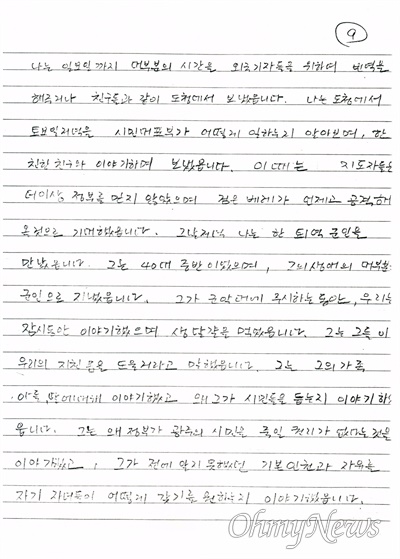 9
나는 일요일까지 대부분의 시간을 외국기자들을 위하여 번역을
해주거나 친구들과 같이 도청에서 보냈읍니다. 나는 도청에서
토요일저녁을 시민대표부가 어떻게 일하는지 알아보며, 한
친한 친구와 이야기하며 보냈읍니다. 이때는 지도자들은
더이상 정부를 믿지 않았으며 검은 베레가 언제고 공격해
올것으로 기대했읍니다. 그날저녁 나는 한 퇴역 군인을
만났읍니다. 그는 40대 중반이었으며, 그의생애의 대부분을
군인으로 지냈읍니다. 그가 음식대에 동안, 우리는
잠시동안 이야기했으며 생달걀을 먹었읍니다. 그는 그들이
우리의 지친 몸을 도울거라고 말했읍니다. 그는 그의 가족
아들, 딸에대해 이야기했고 왜 그가 시민들을 돕는지 이야기했
읍니다. 그는 왜 정부가 광주의 시민을 죽일 권리가 없다는 것을
이야기했고, 그가 전에 알지 못했던 기본인권과 자유를
자기 자녀들이 어떻게 갖기를 원하는지 이야기했읍니다.
OhmyNews